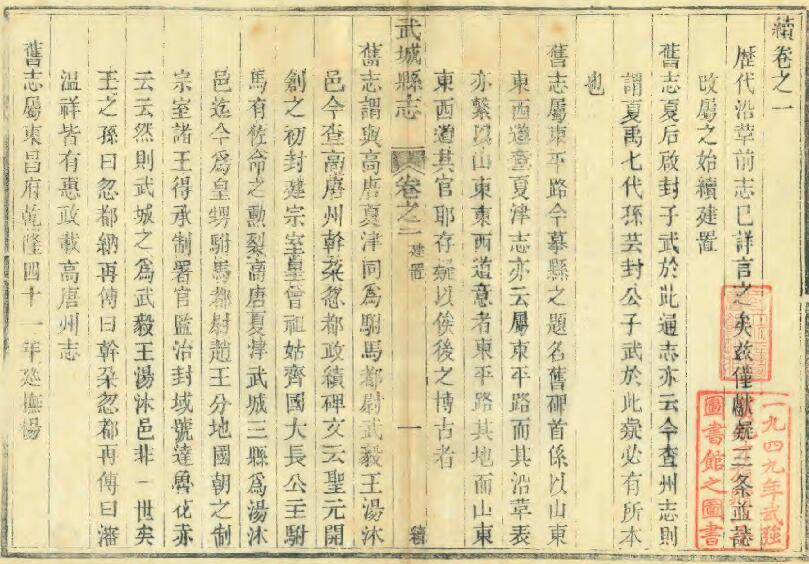 續卷之一
歷代沿革前志已詳言之矣茲僅獻疑三条並誌
改屬之始續建置
舊志夏后啟封子武於此通志亦云今查州志則
謂夏禹七代孫芸封公子武於此疑必有所本
也
舊志屬東平路今墓縣之題名舊碑首係以山東
東西道查夏津志亦云屬東平路而其沿革表
亦繫以山東東西道意者東平路其地而山東
東西道其官耶存疑以俟後之博古者
武城縣志
卷之一
建置
一
續
舊志謂與高唐夏津同為駙馬都尉武毅王湯沐
邑今查高唐州幹朶忽都政績碑文云聖元開
創之初封建宗室皇曾祖姑齊國大長公主駙
馬有佐命之勳裂高唐夏津武城三縣為湯沐
邑迄今為皇甥駙馬都尉趙王分地國朝之制
宗室諸王得承制署官監治封域號達魯化赤
云云然則武城之為武毅王湯沐邑非一世矣
王之孫曰忽都納再傳曰幹朶忽都再傳曰瀋
溫祥皆有惠政載高唐州志
舊志屬東昌府乾隆四十一年巡撫楊
一九四九年武強
圖書館之圖書